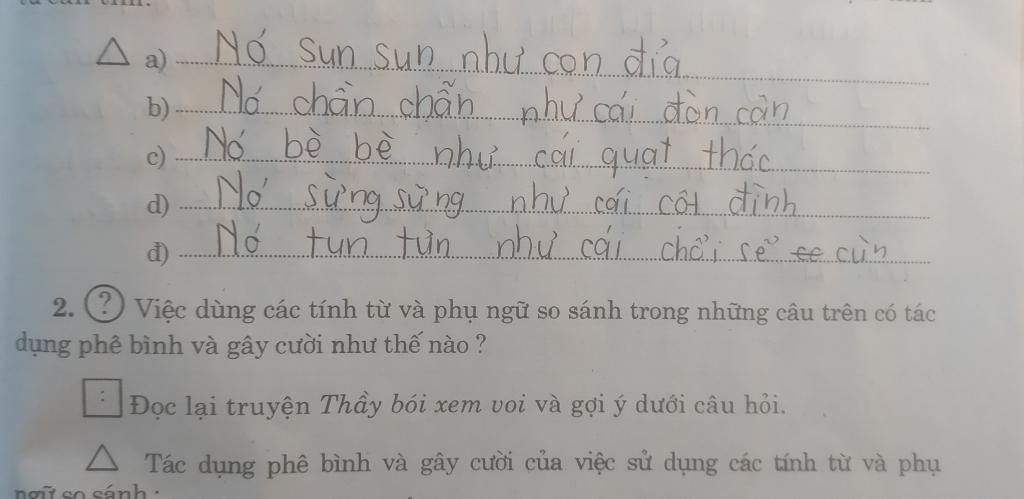 a) Nó sun sun như con đỉa
b) Nó chần chẫn như cái đòn càn
c) Nó bè bè như cái quạt thóc
d) Nó sừng sững như cái cột đình
đ) Nó tun tủn như cái chổi sể cùn
2. ? Việc dùng các tính từ và phụ ngữ so sánh trong những câu trên có tác
dụng phê bình và gây cười như thế nào ?
: Đọc lại truyện Thầy bói xem voi và gợi ý dưới câu hỏi.
Tác dụng phê bình và gây cười của việc sử dụng các tính từ và phụ
ngữ so sánh :